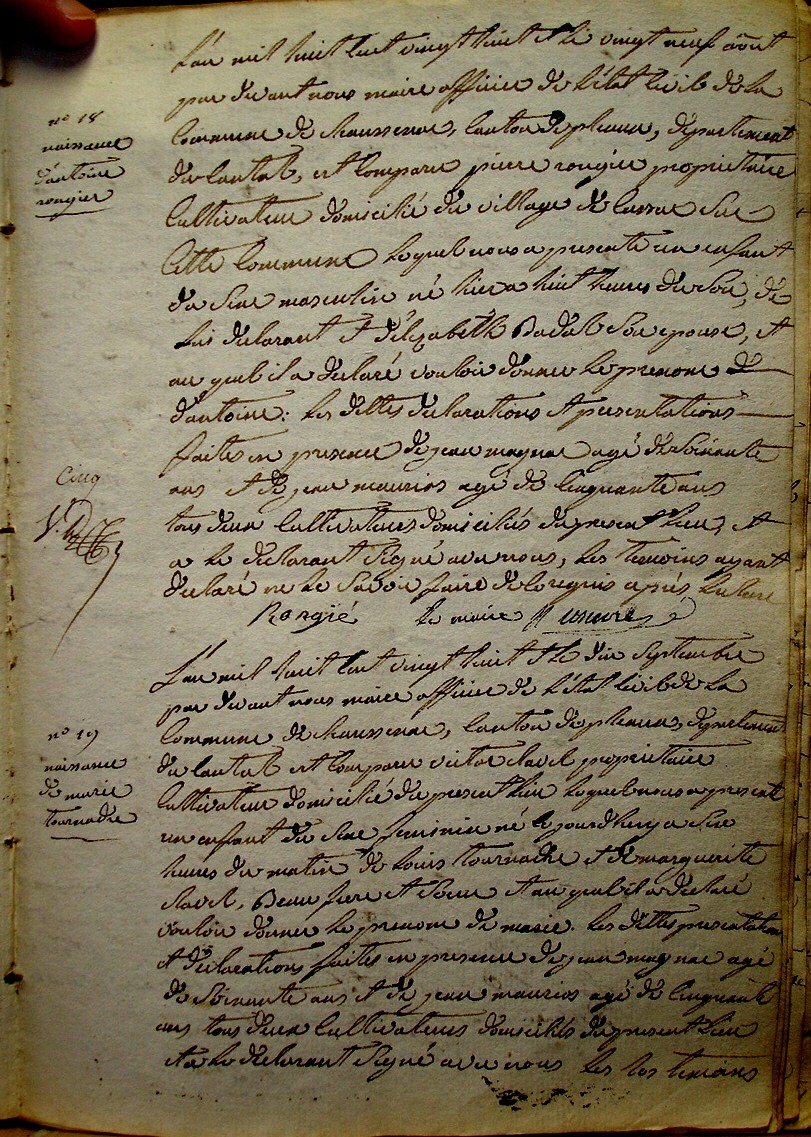 L'an mil huit cent vingt huit et le vingt neuf août
par devant nous maire officier de l'état civil de la
n° 18
naissance
d'antoine
rougier
commune de chaussenac, canton de pleaux, département
du cantal, est comparu pierre rougier propriétaire
cultivateur domicilié du village de cussac sur
cette commune lequel nous a presenté un enfant
du sexe masculin né hier a huit heures du soir, de
lui déclarant et d'élizabeth Badal son epouse, et
au quel il a déclaré vouloir donner le prenom de
d'antoine: les dittes déclarations et presentations
faites en presence de jean magnac agé de soixante
Cinq
ans et de jean maurios agé de cinquante ans
tous deux cultivateurs domiciliés du present lieu, et
a le déclarant signé avec nous, les temoins ayant
declaré ne le savoir faire de ce requis après lecture
Rongié le maire
L'an mil huit cent vingt huit et le dix septembre
par devant nous maire officier de l'état civil de la
n° 19
naissance
de marie
tournadre
commune de chaussenac, canton de pleaux, departement
du cantal est comparu victor clavel propriétaire
cultivateur domicilié du present lieu lequel nous a presenté
un enfant du sexe feminin né ce jourdhuy a six
heures du matin de Louis tournadre et de marguerite
clavel, Beau frere et soeur et au quel il a déclaré
vouloir donner le prenom de marie. les dittes presentations
et déclarations faites en presence de jean magnac agé
de soixante ans et de jean maurios agé de cinquante
ans tous deux cultivateurs domiciliés du present lieu
et a le déclarant signé avec nous les temoins